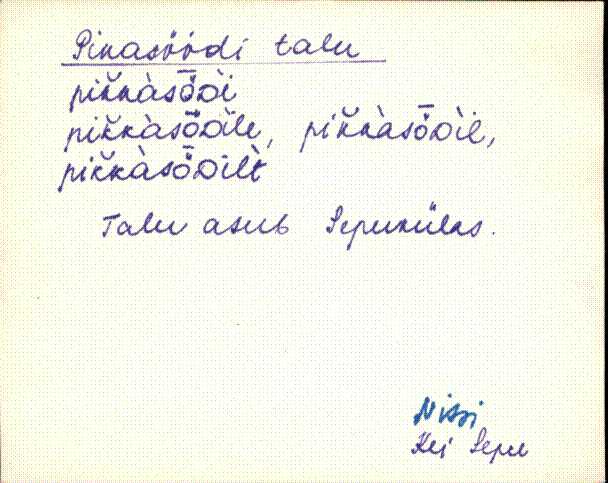 Pikasöödi talu
pik̆kàsȫᴅ̀i
pik̆kàsȫᴅ̀ile, pik̆kàsȫᴅ̀il,
pik̆kàsȫᴅ̀ilt
Talu asub Sepukülas.
Nissi
Sepu